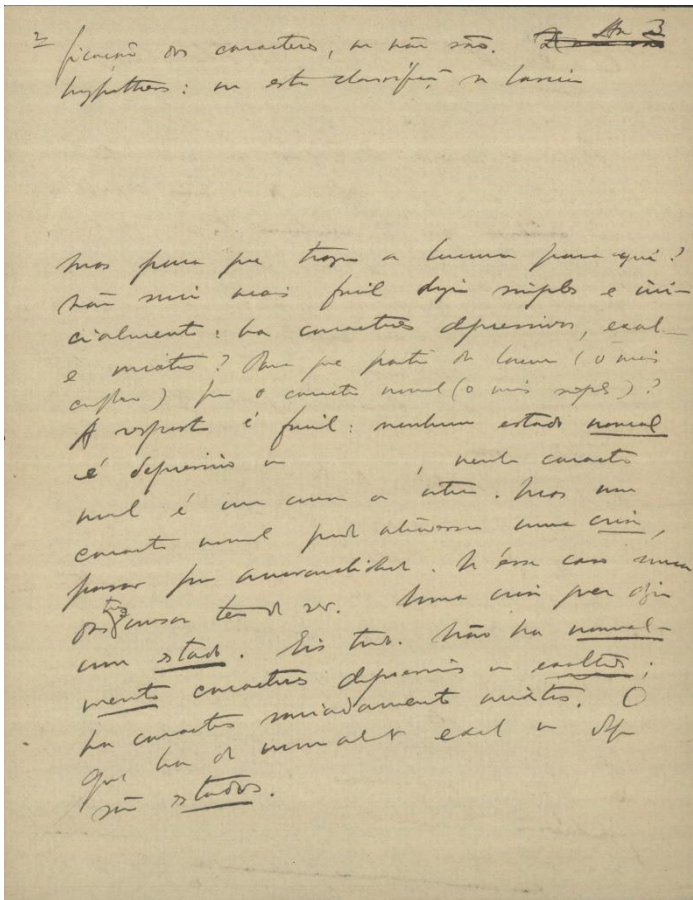 2
ficação dos caracteres, ou não são. Ha 3
hypotheses: ou esta classificação se baseia
Mas para que trazer a loucura para quê?
Não seria mais facil dizer simples e ini-
cialmente: ha caracteres depressivos, exal-
e mixtos? Para que partir da loucura (o mais
complexo) para o caracter normal (o mais simples)?
A resposta é facil: nenhum estado normal
é depressivo ou , nenhum caracter
normal é uma cousa ou outra. Mas um
caracter normal pode atravessar uma crise,
passar por anormalidade. N'esse caso uma
das tres cousas tem de ser. Uma crise quer dizer
um estado. Eis tudo. Não ha normal-
mente caracteres depressivos ou exaltados;
ha caracteres variadamente mixtos. O
que ha de exal ou dep
são estados.